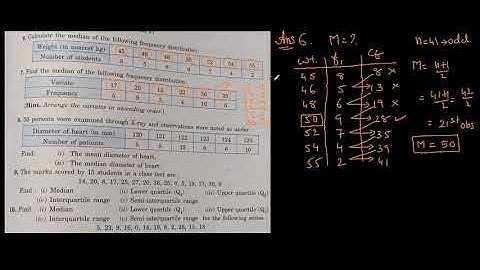 6. Calculate the median of the following frequency distribution:
Weight (in nearest kg) 45 46 48 50 52 54 55
Number of students 8 5 6 9 7 4 2
7. Find the median of the following frequency distribution:
Variate 17 20 22 15 30 25
Frequency 5 9 4 10 6
(Hint. Arrange the variates in ascending order)
8. 50 persons were examined through X-ray and observations were noted as under
Diameter of heart (in mm) 120 121 122 123 124 125
Number of patients 5 9 15 10 6 5
Find: (i) The mean diameter of heart.
(ii) The median diameter of heart
9. The marks scored by 15 students in a class test are
14, 20, 8, 17, 25, 27, 20, 16, 25, 0, 5, 19, 17, 30, 8
Find (i) Median (ii) Lower quartile (Q₁) (iii) Upper quartile (Q₃)
(iv) Interquartile range (v) Semi-interquartile range
10. Find (i) Median (ii) Lower quartile (Q₁) (iii) Upper quartile (Q₃)
(iv) Interquartile range (v) Semi-interquartile range for the following series
5, 23, 9, 16, 0, 14, 19, 8, 2, 26, 13, 18
Ans 6. M=? n=41→odd
wt. fi cf M= n+1/2
45 8 8 x
46 5 13 x = 41+1/2 = 42/2
48 6 19 x
50 9 28 ✓ = 21st obs
52 7 35
54 4 39 M = 50
55 2 41